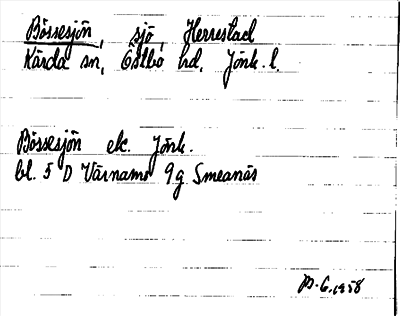 Bössesjön, sjö, Herrestad
Kärda sn, Östbo hd, Jönk. l.
Bössesjön ek. Jönk.
bl. 5 D Värnamo 9g Smeanäs
1958